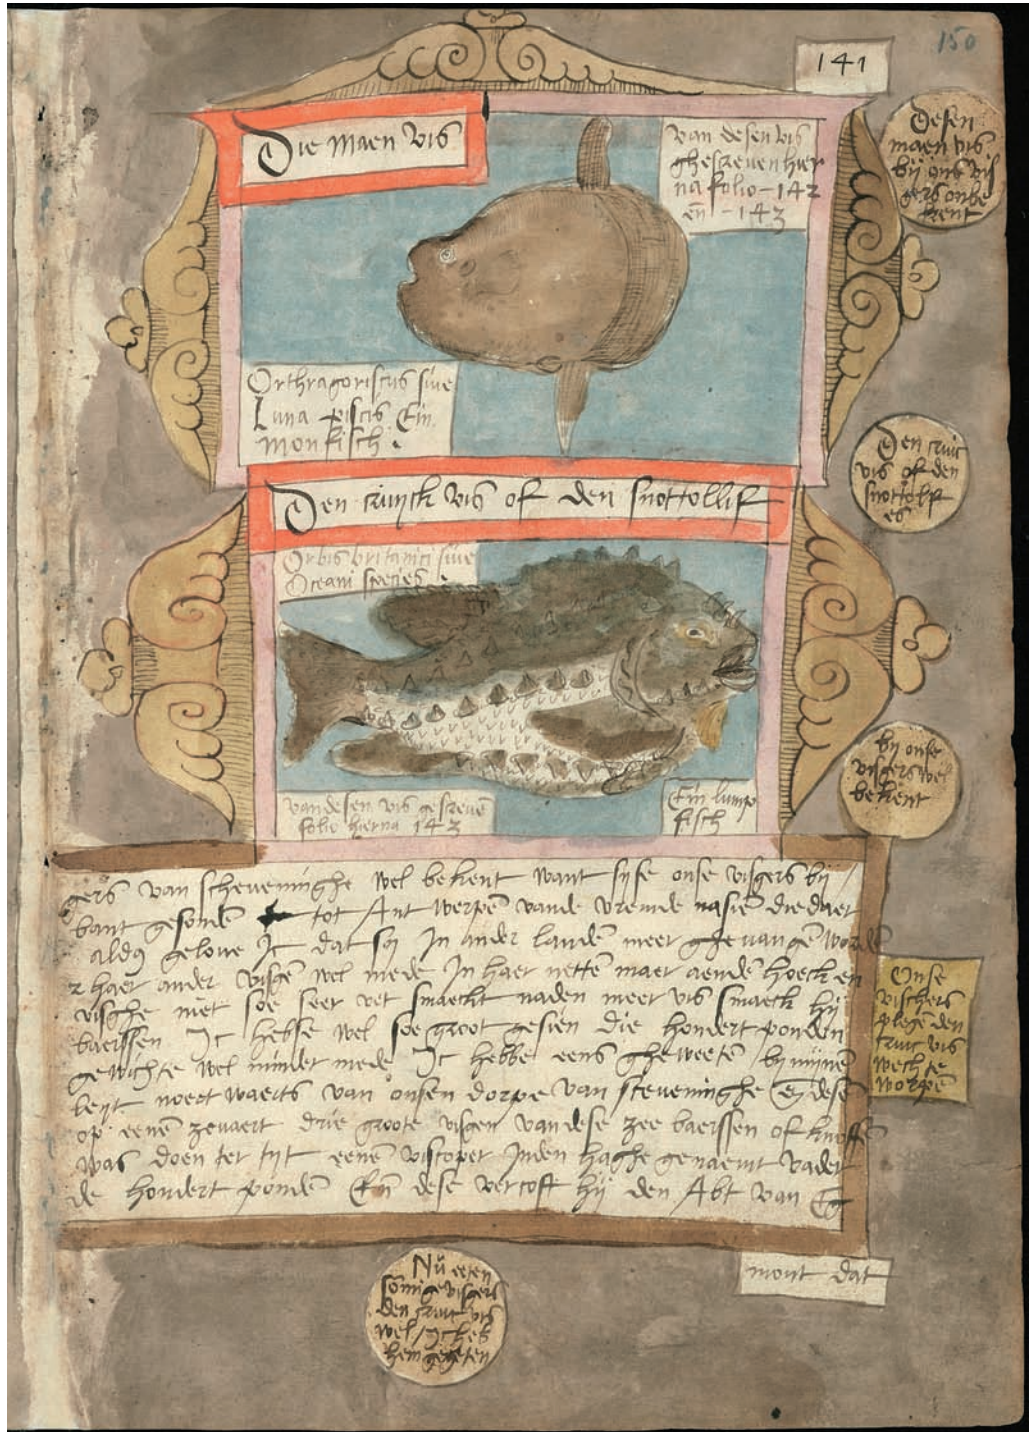 150
141
Die Maen vis
van desen vis
ghescreven hier
na folio - 142
en̄ - 143
Desen
maen vis
bij ons vis
gers onbe
kent
Orthragoriscus sive
Luna piscis Ein
monfisch.
Den cruyck vis of den snottollif
Den cruic
vis of den
snottolf
es
Orbis britanici sive
Oceani species.
bij onse
visgers wel
bekent
van desen vis gescreve
folio hierna 143
Ein lump
fisch
gers van scheveninghe wel bekent want sijse onse visgers bij
bant gesonde tot Antwerpē vande vremde nasiē die daer
aldus gelove Ic dat sij In ander landē meer ghevangē wordē
haer ander visgē wel mede In haer nettē maer aendē hoeck en
visghe niet soe seer vet smaeckt naden meer vis smaeck hij
baerssen Ic hebse wel soe groot gesien die hondert ponden
gewichte wel minder mede Ic hebbe eens gheweetē bij mijnē
noortwaerts van onsen dorpe van sceveninghe en dese
op eenē zevaert drie groote visgen van dese zee baerssen of
was doen ter tijt eenē viscoper Inden haghe genaemt vader
de hondert pondē Ein dese vercoft hij den Abt van Eg
Onse
visschers
plegē den
cruic vis
wech te
worpē
mont dat
Nu eeten
somige visgers
den cruic vis
wel / Ic heb
hem gegeten